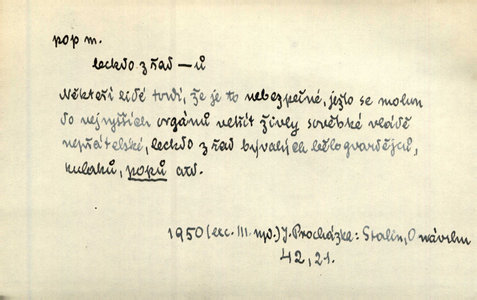 pop m.
leckdo z řad – ů
Někteří lidé tvrdí, že je to nebezpečné, ježto se mohou
do nejvyšších orgánů vetřít živly sovětské vládě
nepřátelské, leckdo z řad bývalých bělogvardějců,
kulaků, popů atd.
1950 (exc. III. mp.) J. Procházka: Stalin, O návrhu
42, 21.